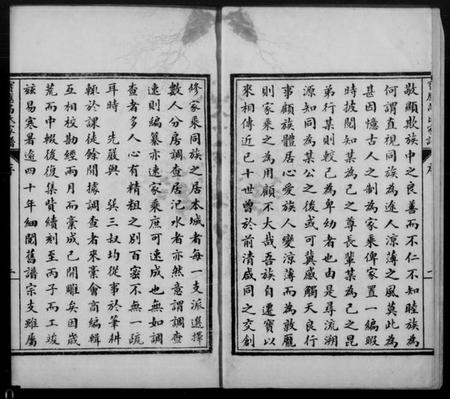 敦顯欺族中之良善而不仁不知睦族為
何謂直視同族為途人涼薄之風莫此為
甚因憶古人之制為家乘俾家置一編暇
時披閱知某為己之尊長輩某為己之昆
弟行某則較己為卑幼者也由是尋流溯
源知同為某公之後或可冀感觸天良行
事顧族體居心愛族人變澆薄而為敦龐
則家乘之為用顧不大哉吾族自遷寶以
來相傳近已十世曾於前清咸同之交創
修家乘同族之居本城者每一支派選擇
數人分房調查居汜水者亦然意謂調查
速則編纂亦速家乘庶可速成也無如調
查者多人心有精粗之別百密不無一疏
耳時先嚴與吳三叔均從事於筆耕
輒於課徒餘閒據調查者來稾會商編輯
互相校勘經兩月而稾成己開雕矣因歲
荒而中輟後復集貲續刻至丙子而工竣
茲易寒暑逾四十年細閱舊譜宗支雖屬